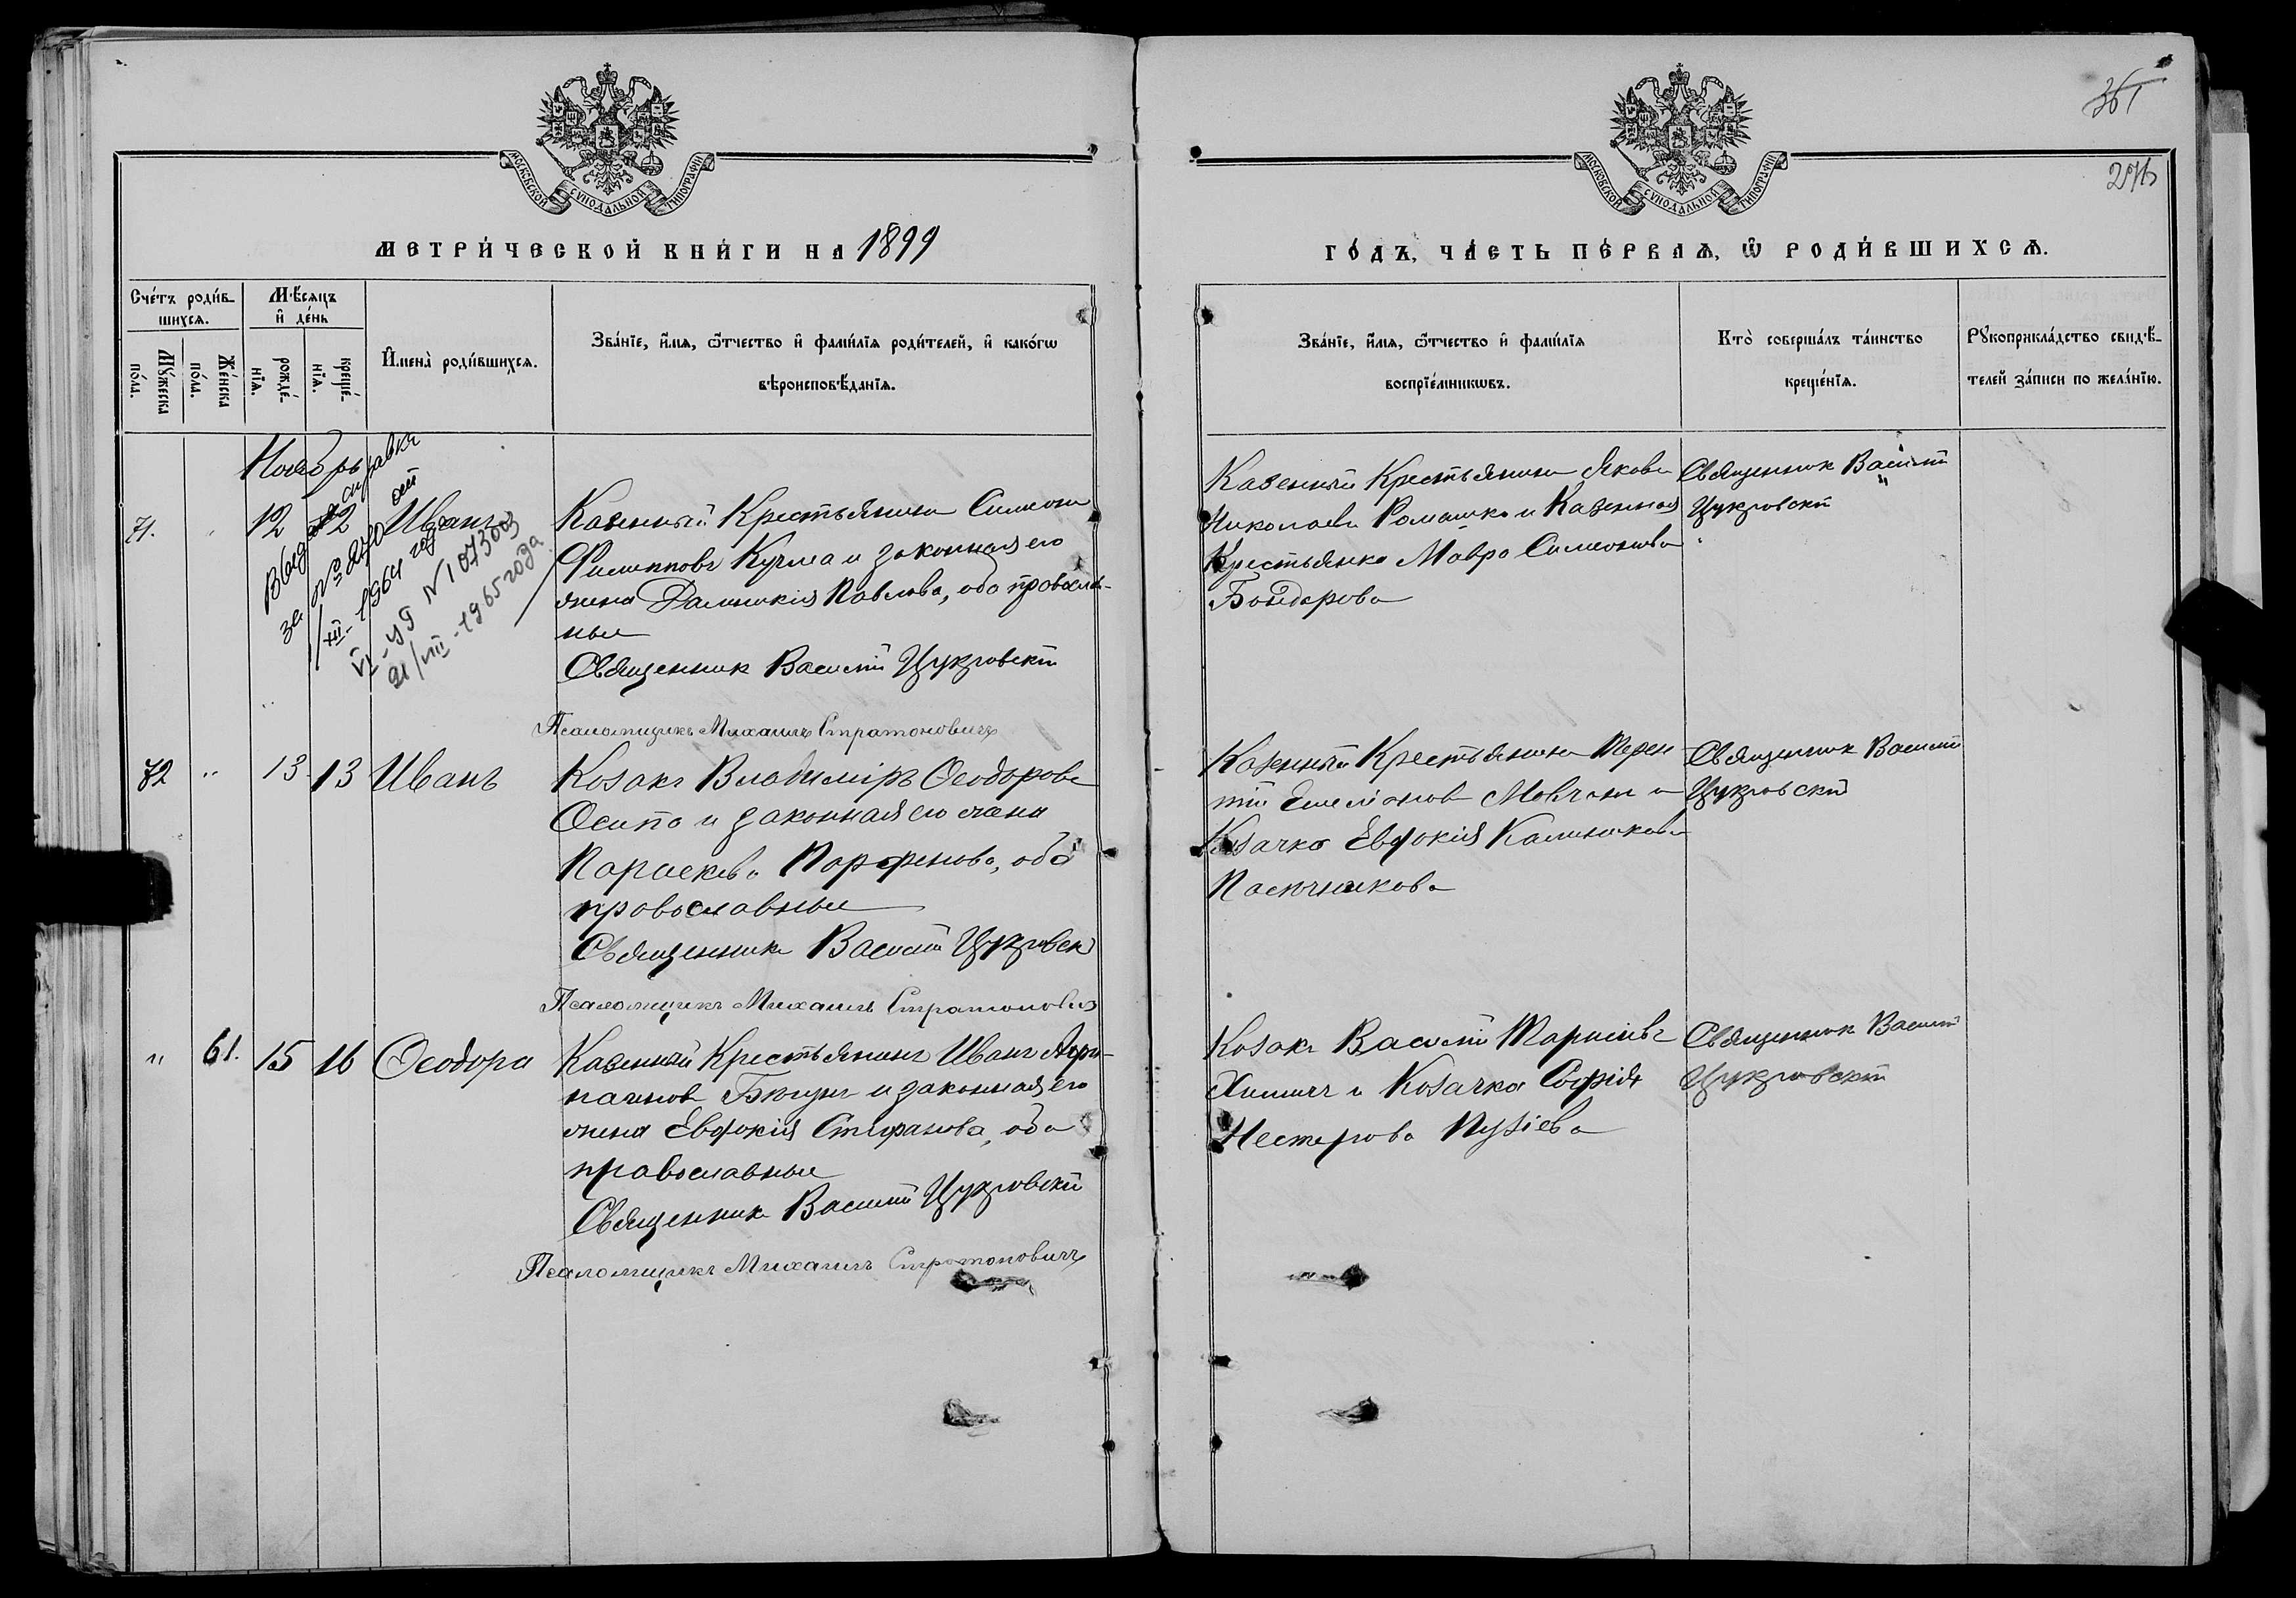 361
276
МОСКОВСКОЙ СѴНОДАЛЬНОЙ ТИПОГРАФІИ
МОСКОВСКОЙ СѴНОДАЛЬНОЙ ТИПОГРАФІИ
МЕТРИ́ЧЕСКОЙ КНИ́ГИ НА 1899
ГО́ДЪ, ЧА́СТЬ ПЕ́РВАѦ, Ѿ РОДИ́ВШИХСѦ.
Сче́тъ роди́в-
шихсѧ.
Мꙋ́жеска
по́ла.
Же́нска
по́ла.
Мѣ́сѧцъ
и҆ де́нь
рожде́-
нїѧ.
креще́-
нїѧ.
И҆мена̀ роди́вшихсѧ.
Зва́нїе, и҆́мѧ, ѻ҆́тчество и҆ фами́лїѧ роди́телей, и҆ како́гѡ
вѣроисповѣ́данїѧ.
Зва́нїе, и҆́мѧ, ѻ҆́тчество и҆ фами́лїѧ
воспрїе́мникѡвъ.
Кто̀ соверша́лъ та́инство
креще́нїѧ.
Рꙋкоприкла́дство свидѣ́-
телей за́писи по жела́нїю.
Ноябрь
71. " 12 12 Иванъ
Выдана справка
за № 270 от
/XII-1964 года
VI-УР N 1073003
21/VIII-1965 года
Казенный Крестьянинъ Симеонъ
Филипповъ Кучма и законная его
жена Домникія Павлова, оба православ-
ные
Священникъ Василій Цукровскій
Псаломщикъ Михаилъ Стратоновичъ
Казенный Крестьянинъ Яковъ
Николаевъ Ромашко и Казенная
Крестьянка Мавра Симеонова
Бондарова
Священникъ Василій
Цукровскій
72 " 13 13 Иванъ
Козакъ Владиміръ Ѳеодоровъ
Осипа и законная его жена
Параскева Парфенова, оба
православные
Священникъ Василій Цукровскій
Псаломщикъ Михаилъ Стратоновичъ
Казенный Крестьянинъ Терен-
тій Емеліановъ Мовчанъ и
Козачка Евдокія Калиникова
Пасечникова
Священникъ Василій
Цукровскій
" 61. 15 16 Ѳеодора
Казенный Крестьянинъ Иванъ Агри-
пановъ Бюгунъ и законная его
жена Евдокія Стефанова, оба
православные
Священникъ Василій Цукровскій
Псаломщикъ Михаилъ Стратоновичъ
Козакъ Василій Тарасіевъ
Химичъ и Козачка Софія
Нестерова Пузіева
Священникъ Василій
Цукровскій